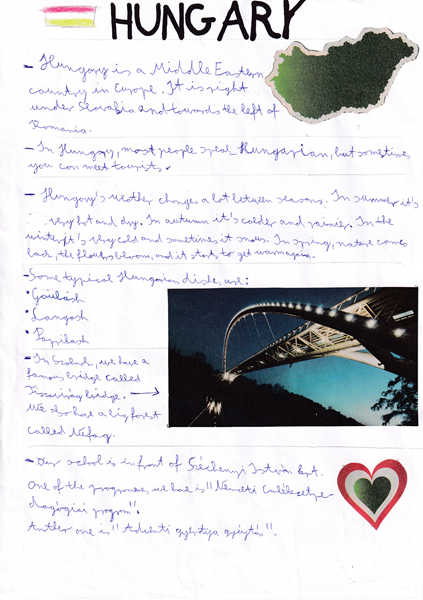 HUNGARY
- Hungary is a Middle Eastern
country in Europe. It is right
under Slovakia and towards the left of
Romania.
- In Hungary, most people speak Hungarian, but sometimes
you can meet tourists.
- Hungary's weather changes a lot between seasons. In summer it's
very hot and dry. In autumn it's colder and rainier. In the
winter it's very cold and sometimes it snows. In spring, nature comes
back, the flowers bloom, and it starts to get warm again.
- Some typical Hungarian dishes are:
• Goulash
• Langosh
• Paprilash
- In Szolnok, we have a
famous bridge called
bridge. →
We also have a big forest
called
- Our school is in front of Széchenyi István krt.
One of the programmes we have is "Nemzeti
program".
Another one is "Adventi gyertya gyújtás".